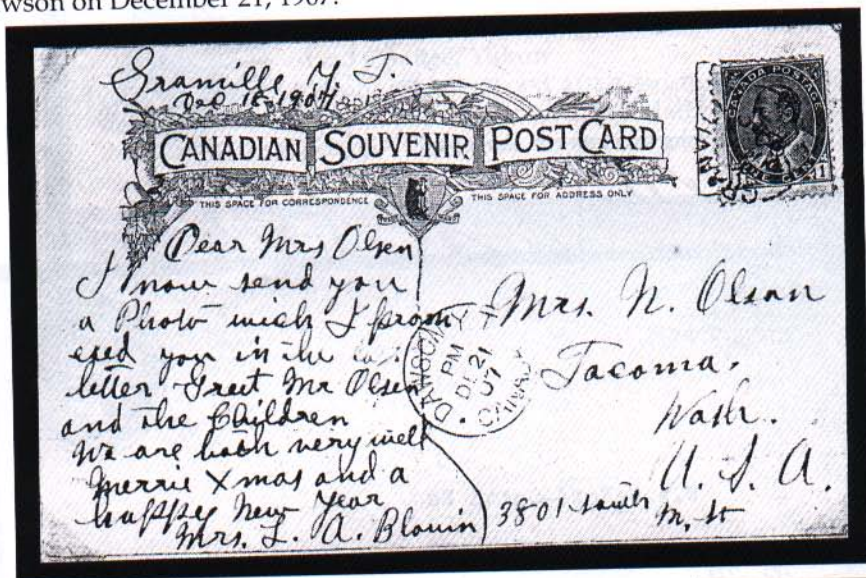 wson on December 21, 1907.
Granville Y. T.
Dec 18-1907
CANADIAN SOUVENIR POST CARD
THIS SPACE FOR CORRESPONDENCE
THIS SPACE FOR ADDRESS ONLY
CANADA POSTAGE
1 1
GRANVI
Dear Mrs Olsen
I now send you
a Photo wich I prom
esed you in the
letter Greet Mr Olsen
and the Children
We are both very well
Merrie Xmas and a
happy New Year
Mrs. L. A. Blouin
DAWSON Y.T
PM
DE 21
07
CANADA
Mrs. N. Olson
Tacoma.
Wash.
U. S. A.
3801 south
M. St